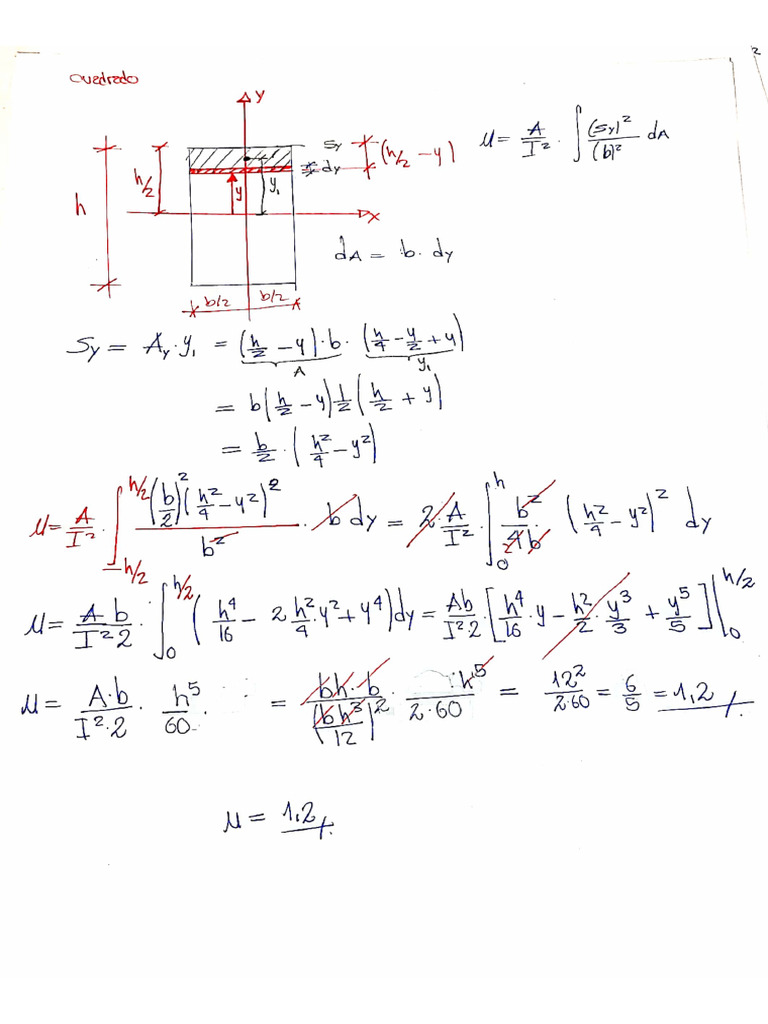 2
Quadrado
y
Sy
dy
(h/2 - y)
μ = A/I² · ∫ (Sy)²/(b)² dA
h/2
h
y
y₁
x
dA = b · dy
b/2 b/2
Sy = Ay · y₁ = (h/2 - y) · b · (h/4 - y/2 + y)
A y₁
= b(h/2 - y) 1/2 (h/2 + y)
= b/2 · (h²/4 - y²)
μ = A/I² · ∫_{-h/2}^{h/2} (b/2)² (h²/4 - y²)² / b² · b dy = 2 · A/I² · ∫_0^h b²/4b (h²/4 - y²)² dy
μ = A b/I² 2 · ∫_0^{h/2} (h⁴/16 - 2 h²/4 · y² + y⁴) dy = Ab/I² · 2 · [h⁴/16 · y - h²/2 · y³/3 + y⁵/5]|_0^{h/2}
μ = A · b/I² · 2 · h⁵/60 · = bh · b/(bh³/12)² · h⁵/2 · 60 = 12²/2 · 60 = 6/5 = 1,2
μ = 1,2